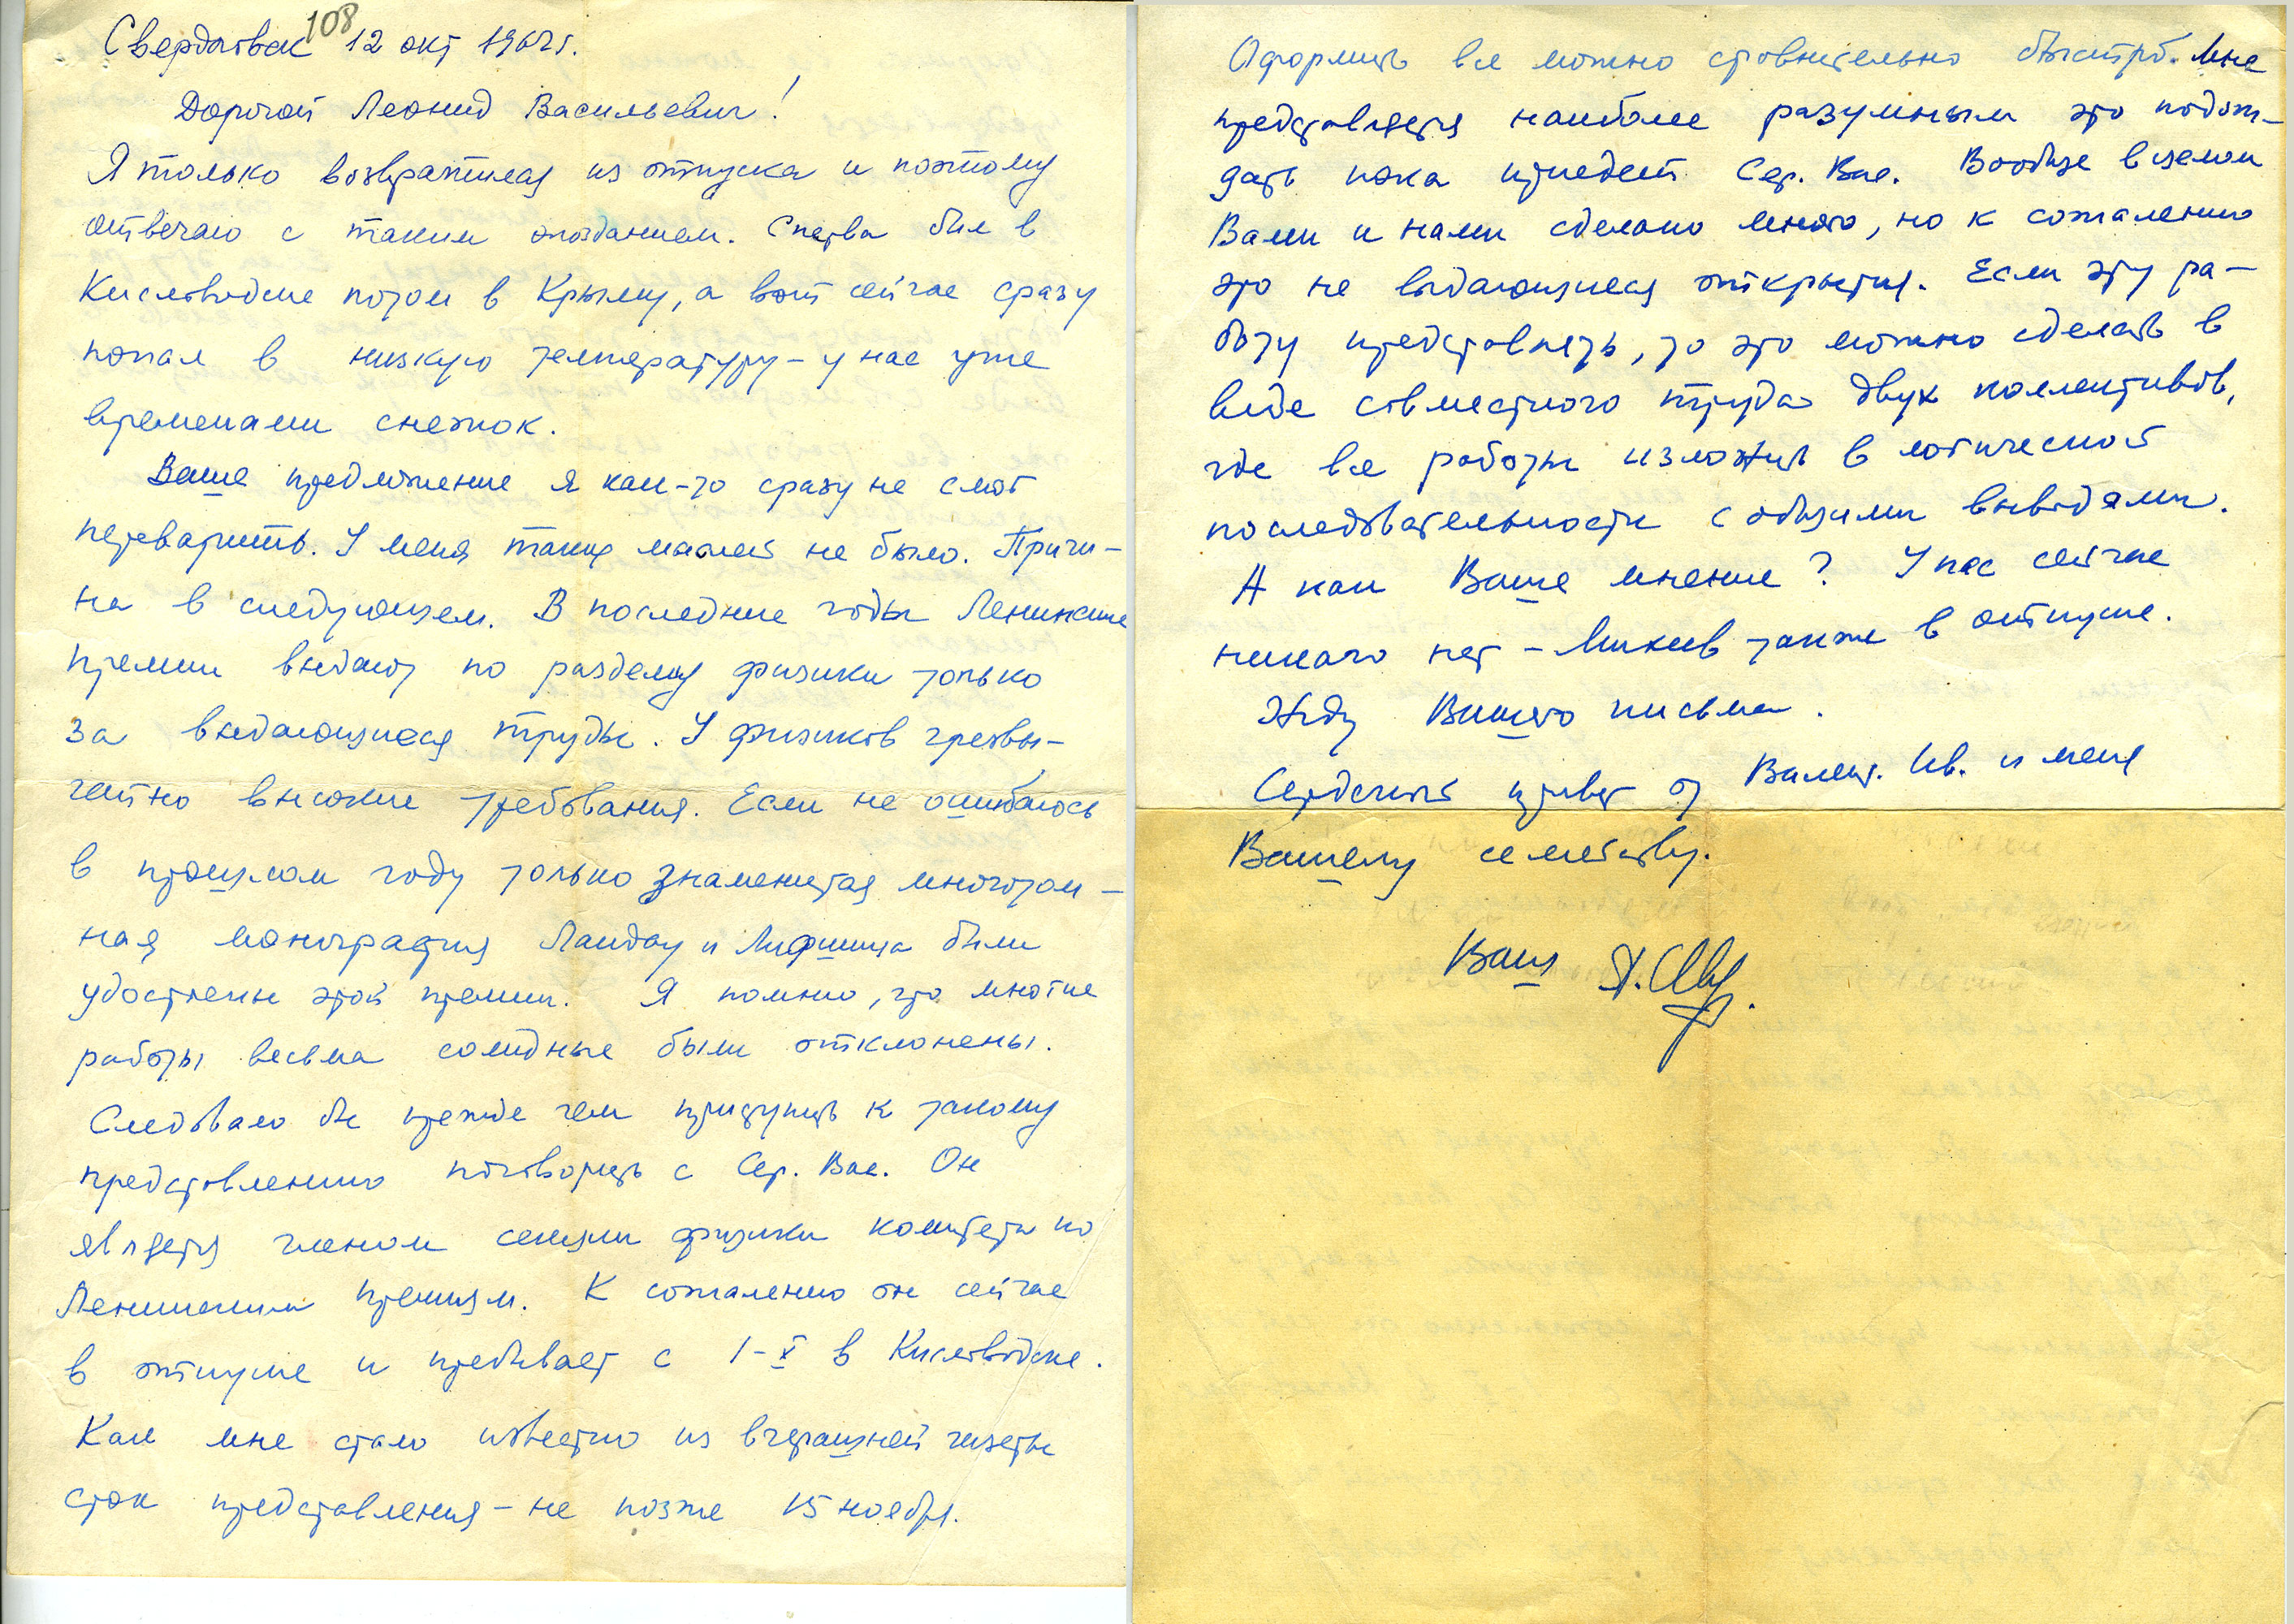 108
Свердловск 12 окт 1962 г.
Дорогой Леонид Васильевич!
Я только возвратился из отпуска и поэтому
отвечаю с таким опозданием. Сперва был в
Кисловодске потом в Крыму, а вот сейчас сразу
попал в низкую температуру – у нас уже
временами снежок.
Ваше предложение я как-то сразу не смог
переварить. У меня таких мыслей не было. Причи-
на в следующем. В последние годы Ленинские
премии выдают по разделу физики только
за выдающиеся труды. У физиков чрезвы-
чайно высокие требования. Если не ошибаюсь
в прошлом году только знаменитая многотом-
ная монография Ландау и Лифшица были
удостоены этой премии. Я помню, что многие
работы весьма солидные были отклонены.
Следовало бы прежде чем приступить к такому
представлению поговорить с Сер. Вас. Он
является членом секции физики комитета по
Ленинским премиям. К сожалению он сейчас
в отпуске и пребывает с 1-X в Кисловодске.
Как мне стало известно из вчерашней газеты
срок представления – не позже 15 ноября.
Оформить все можно сравнительно быстро. Мне
представляется наиболее разумным это подож-
дать пока приедет Сер. Вас. Вообще в целом
Вами и нами сделано много, но к сожалению
это не выдающиеся открытия. Если эту ра-
боту представлять, то это можно сделать в
виде совместного труда двух коллективов,
где все работы изложить в логической
последовательности с общими выводами.
А как Ваше мнение? У нас сейчас
никого нет – Михеев также в отпуске.
Жду Вашего письма.
Сердечный привет от Валент. Ив. и меня
Вашему семейству.
Ваш Я. Шур.